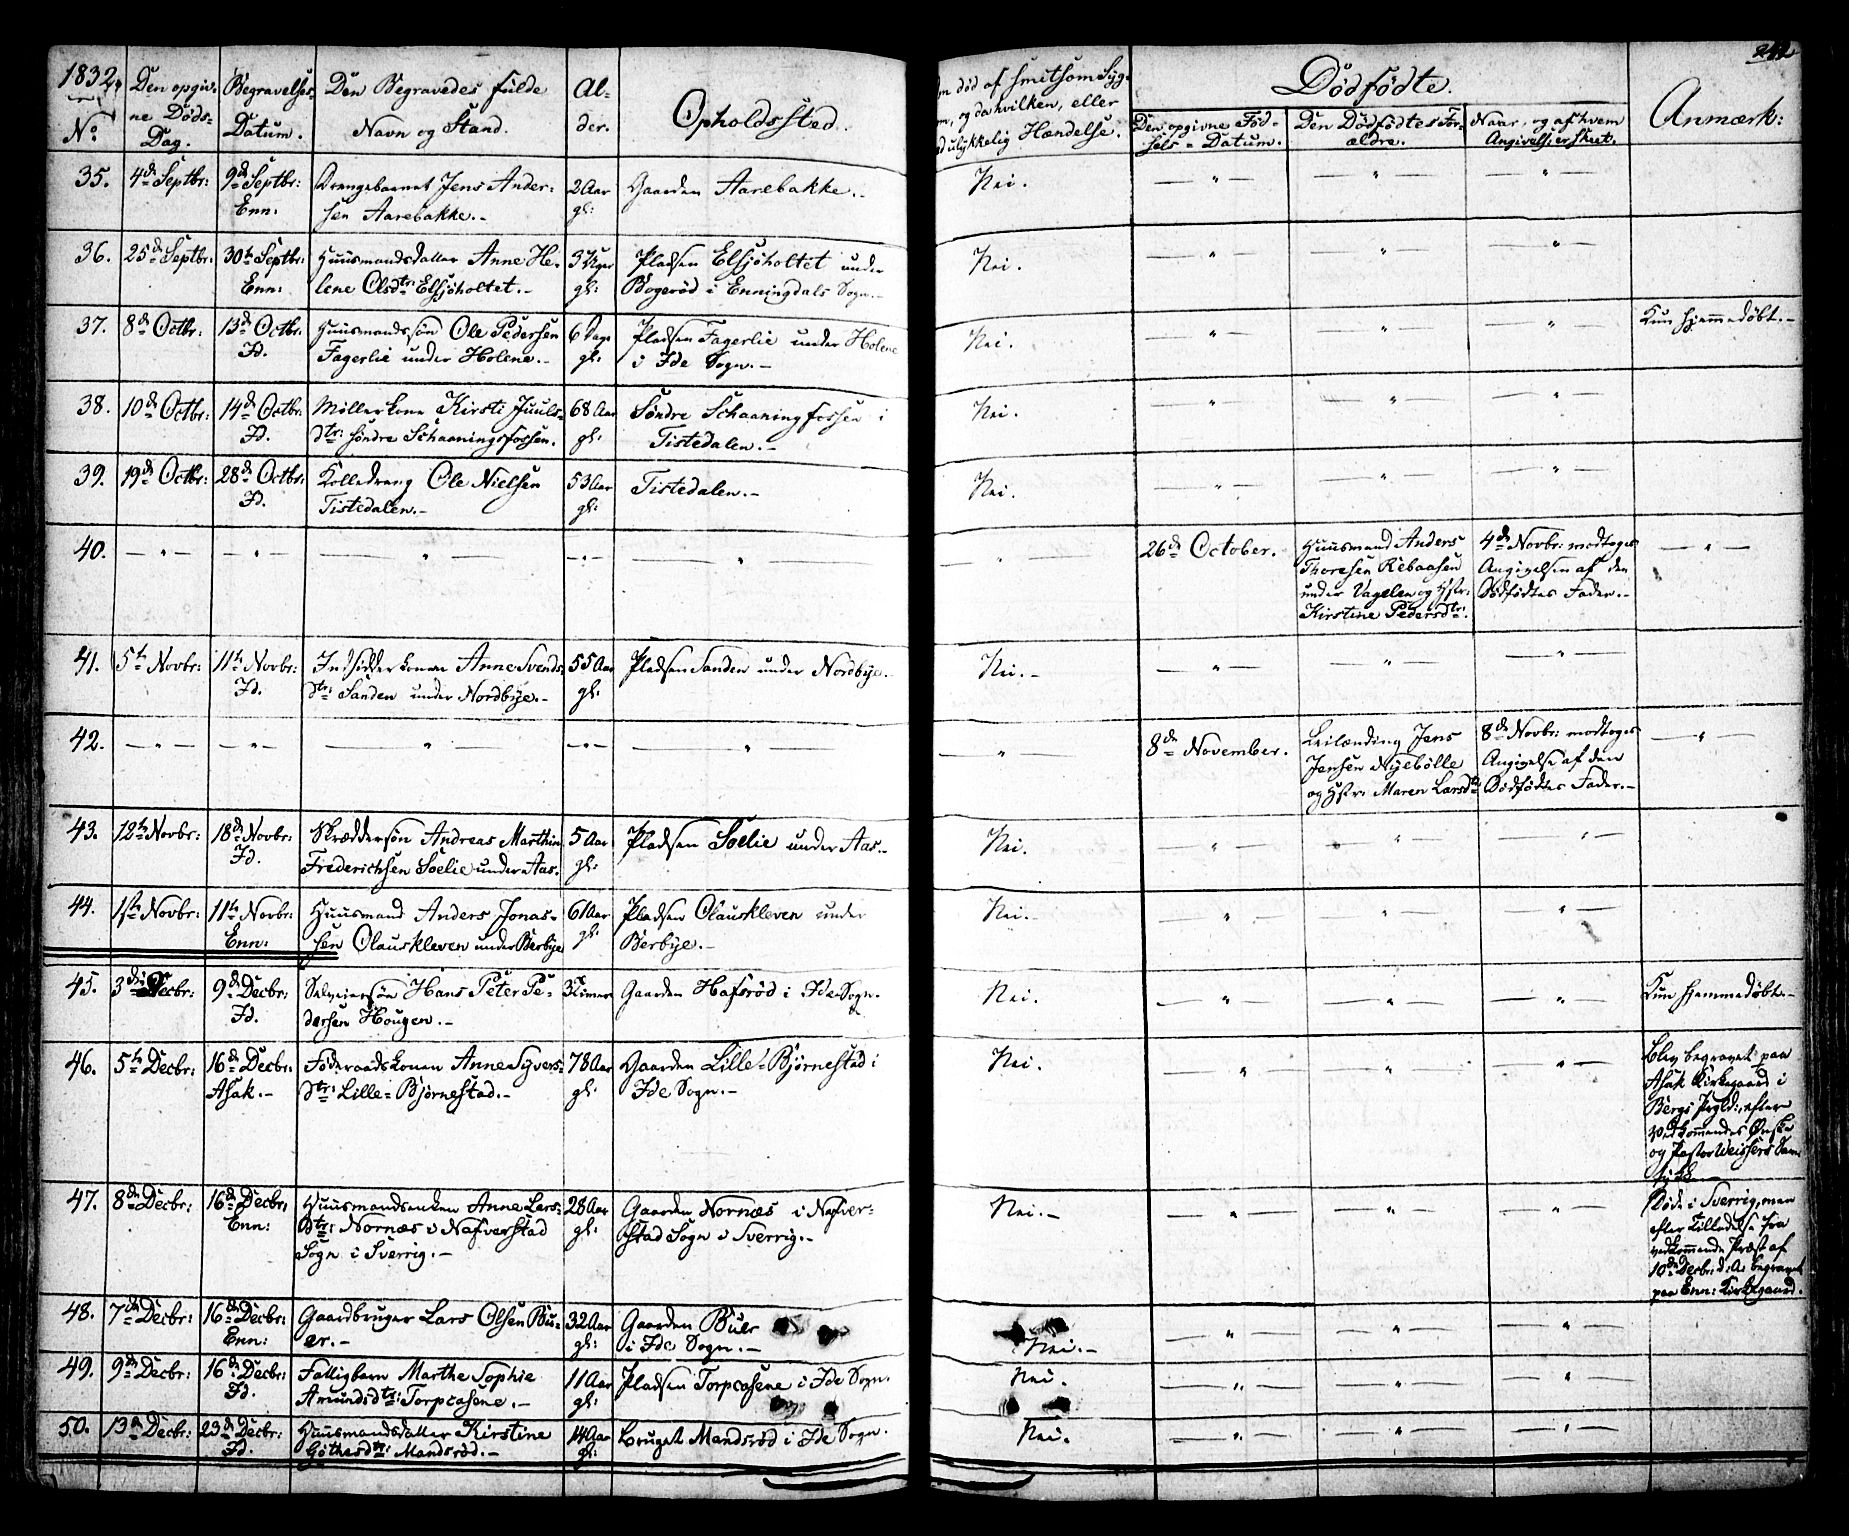 1832.
No
Den opgiv-
ne Døds-
Dag.
Begravelses-
Datum.
Den Begravedes fulde
Navn og Stand.
Al-
der.
Opholdssted.
død af smitsom Syg-
og da hvilken, eller
ulykkelig Hændelse.
Dødfødte.
Den opgivne Fød-
sels-Datum.
Den Dødfødtes For-
ældre.
Naar, og af hvem
Angivelse er skeet.
Anmærk:
242
35. 4de Septbr: 9de Septbr: Drengebarnet Jens Ander- 2 Aar Gaarden Aarebakke.- Nei. — " — — " — — " —
Enn: sen Aarebakke.- gl:
36. 25de Septbr: 30te Septbr: Huusmandsdatter Anne He- 3 Uger Pladsen Elsjøholtet under Nei. — " — — " — — " —
Enn: lene Olsdtr: Elsjøholtet.- gl: Bogerød i Enningdals Sogn.-
37. 8de Octbr: 13de Octbr: Huusmandssøn Ole Pedersen 6 Dage Pladsen Fagerlie under Holene Nei. — " — — " — — " — Kun hjemmedøbt.-
Id. Fagerlie under Holene.- gl: i Ide Sogn.-
38. 10de Octbr: 14de Octbr: Møllerkone Kirsti Juuls- 68 Aar Søndre Schaaningfossen i Nei. — " — — " — — " —
Id. dtr: søndre Schaaningsfossen. gl: Tistedalen.-
39. 19de Octbr: 28de Octbr: Ole Nielsen 53 Aar Tistedalen.- Nei. — " — — " — — " —
Id. Tistedalen.- gl:
40. — " — — " — — " — — " — — " — — " — 26de October. Huusmand Anders 4de Novbr: modtoges — " —
Thoresen Rebaasen Angivelsen af den
under Vagelen og Hstr: Dødfødtes Fader.-
Kirstine Pedersdtr:
41. 5te Novbr: 11te Novbr: Indsidderkonen Anne Svends- 55 Aar Pladsen Sanden under Nordbye.- Nei.- — " — — " — — " —
Id. dtr: Sanden under Nordbye.- gl:
42. — " — — " — — " — — " — — " — — " — 8de November. Leilænding Jens 8de Novbr: modtoges — " —
Jensen Nyebølle Angivelse af den
og Hstr: Maren Larsdtr Dødfødtes Fader.-
43. 12te Novbr: 18de Novbr: Skræddersøn Andreas Marthin 5 Aar Pladsen Soelie under Aas.- Nei. — " — — " — — " —
Id. Frederichsen Soelie under Aas. gl:
44. 1ste Novbr: 11te Novbr: Huusmand Anders Jonas- 61 Aar Pladsen Clauskleven under Nei.- — " — — " — — " —
Enn: sen Clauskleven under Berbye gl: Berbye.-
45. 3die Decbr: 9de Decbr: Selveiersøn Hans Peter Pe- 3 Timer Gaarden Hafsrød i Ide Sogn. Nei. — " — — " — — " — Kun hjemmedøbt.-
Id. dersen Hougen.-
46. 5te Decbr: 16de Decbr: Föderaadskonen Anne Syvers- 78 Aar Gaarden Lille-Bjørnestad i Nei. — " — — " — — " — Blev begravet paa
Asak.- dtr: Lille-Bjørnestad.- gl: Ide Sogn.- Asak Kirkegaard i
Bergs Prgld:, efter
Vedkommendes Ønske
og Pastor Weissers Sam-
tykke
47. 8de Decbr: 16de Decbr: Huusmandsenken Anne Lars- 28 Aar Gaarden Nornæs i Nafver- Nei.- — " — — " — — " — Døde i Sverrig, men
Enn: dtr: Nornæs i Nafverstad gl: stad Sogn i Sverrig.- efter Tilladelse fra
Sogn i Sverrig.- vedkommende Præst af
10de Decbr: d: A: begravet
paa Enn: Kirkegaard.
48. 7de Decbr: 16de Decbr: Gaardbruger Lars Olsen Bu- 32 Aar Gaarden Buer Nei.- — " — — " — — " —
Enn: er.- gl: i Ide Sogn.-
49. 9de Decbr: 16de Decbr: Fattigbarn Marthe Sophie 11 Aar Pladsen Torpeasene i Ide Sogn. Nei. — " — — " — — " —
Id. Amundsdtr: Torpeasene.- gl:
50. 13de Decbr: 23de Decbr: Huusmandsdatter Kirstine 14 Aar Bruget Mandsrød i Ide Sogn. Nei. — " — — " — — " —
Id. Mandsrød.- gl: